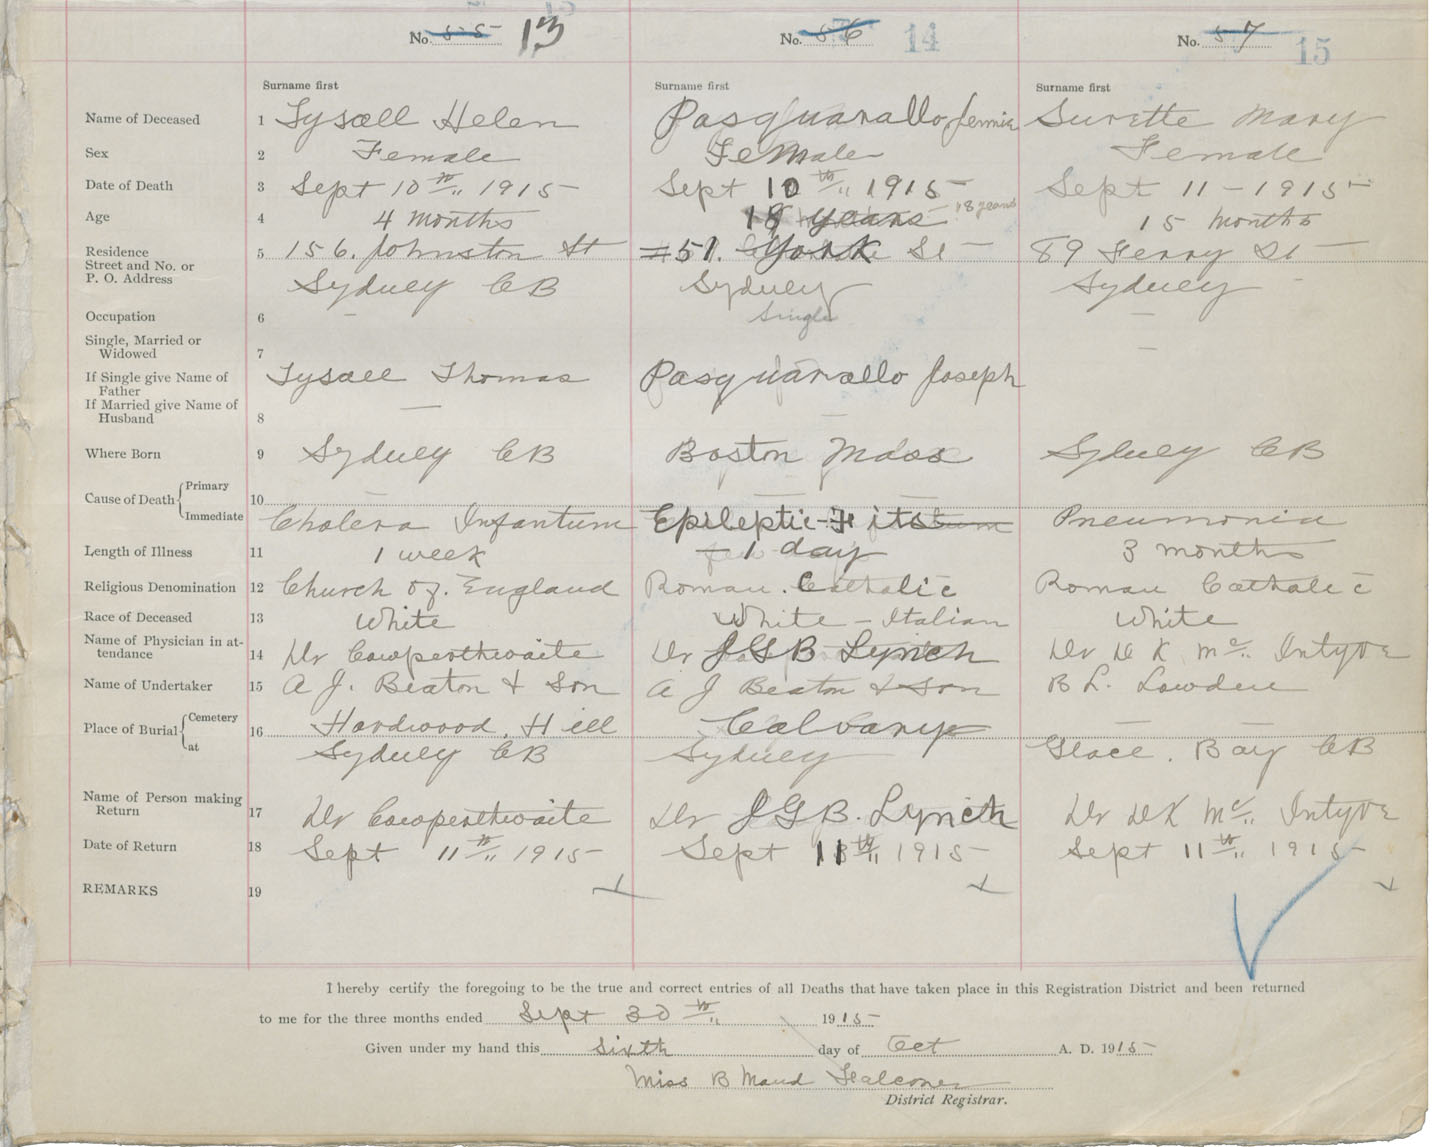 No. 55 13 No. 56 14 No. 57 15
Surname first Surname first Surname first
Name of Deceased 1 Lysall Helen Pasquarallo, Jennie Surette Mary
Sex 2 Female Female Female
Date of Death 3 Sept 10th 1915 Sept 10th 1915 Sept 11 - 1915
Age 4 4 months 18 years 18 years 15 months
Residence 5 156. Johnston St #51. York St 89 Ferry St
Street and No. or
P. O. Address Sydney CB Sydney Sydney
Occupation 6 – Single –
Single, Married or
Widowed 7 –
If Single give Name of
Father Lysall Thomas Pasquarallo Joseph
If Married give Name of
Husband 8 — –
Where Born 9 Sydney CB Boston Mass Sydney CB
Cause of Death Primary 10 – — —
Immediate Cholera Infantum Epileptic-Fits Pneumonia
Length of Illness 11 1 week 1 day 3 months
Religious Denomination 12 Church of. England Roman. Catholic Roman Catholic
Race of Deceased 13 White White - Italian White
Name of Physician in at-
tendance 14 Dr Cowperthwaite Dr J G B Lynch Dr D K Mc Intyre
Name of Undertaker 15 A J. Beaton & Son A J Beaton & Son B L. Lowden
Place of Burial Cemetery 16 Hardwood. Hill Calvary — —
at Sydney CB Sydney Glace. Bay CB
Name of Person making
Return 17 Dr Cowperthwaite Dr J G B. Lynch Dr D K Mc Intyre
Date of Return 18 Sept 11th 1915 Sept 11th 1915 Sept 11th 1915
REMARKS 19
I hereby certify the foregoing to be the true and correct entries of all Deaths that have taken place in this Registration District and been returned
to me for the three months ended Sept 30th 1915
Given under my hand this sixth day of Oct A. D. 1915
Miss B Maud Falconer
District Registrar.